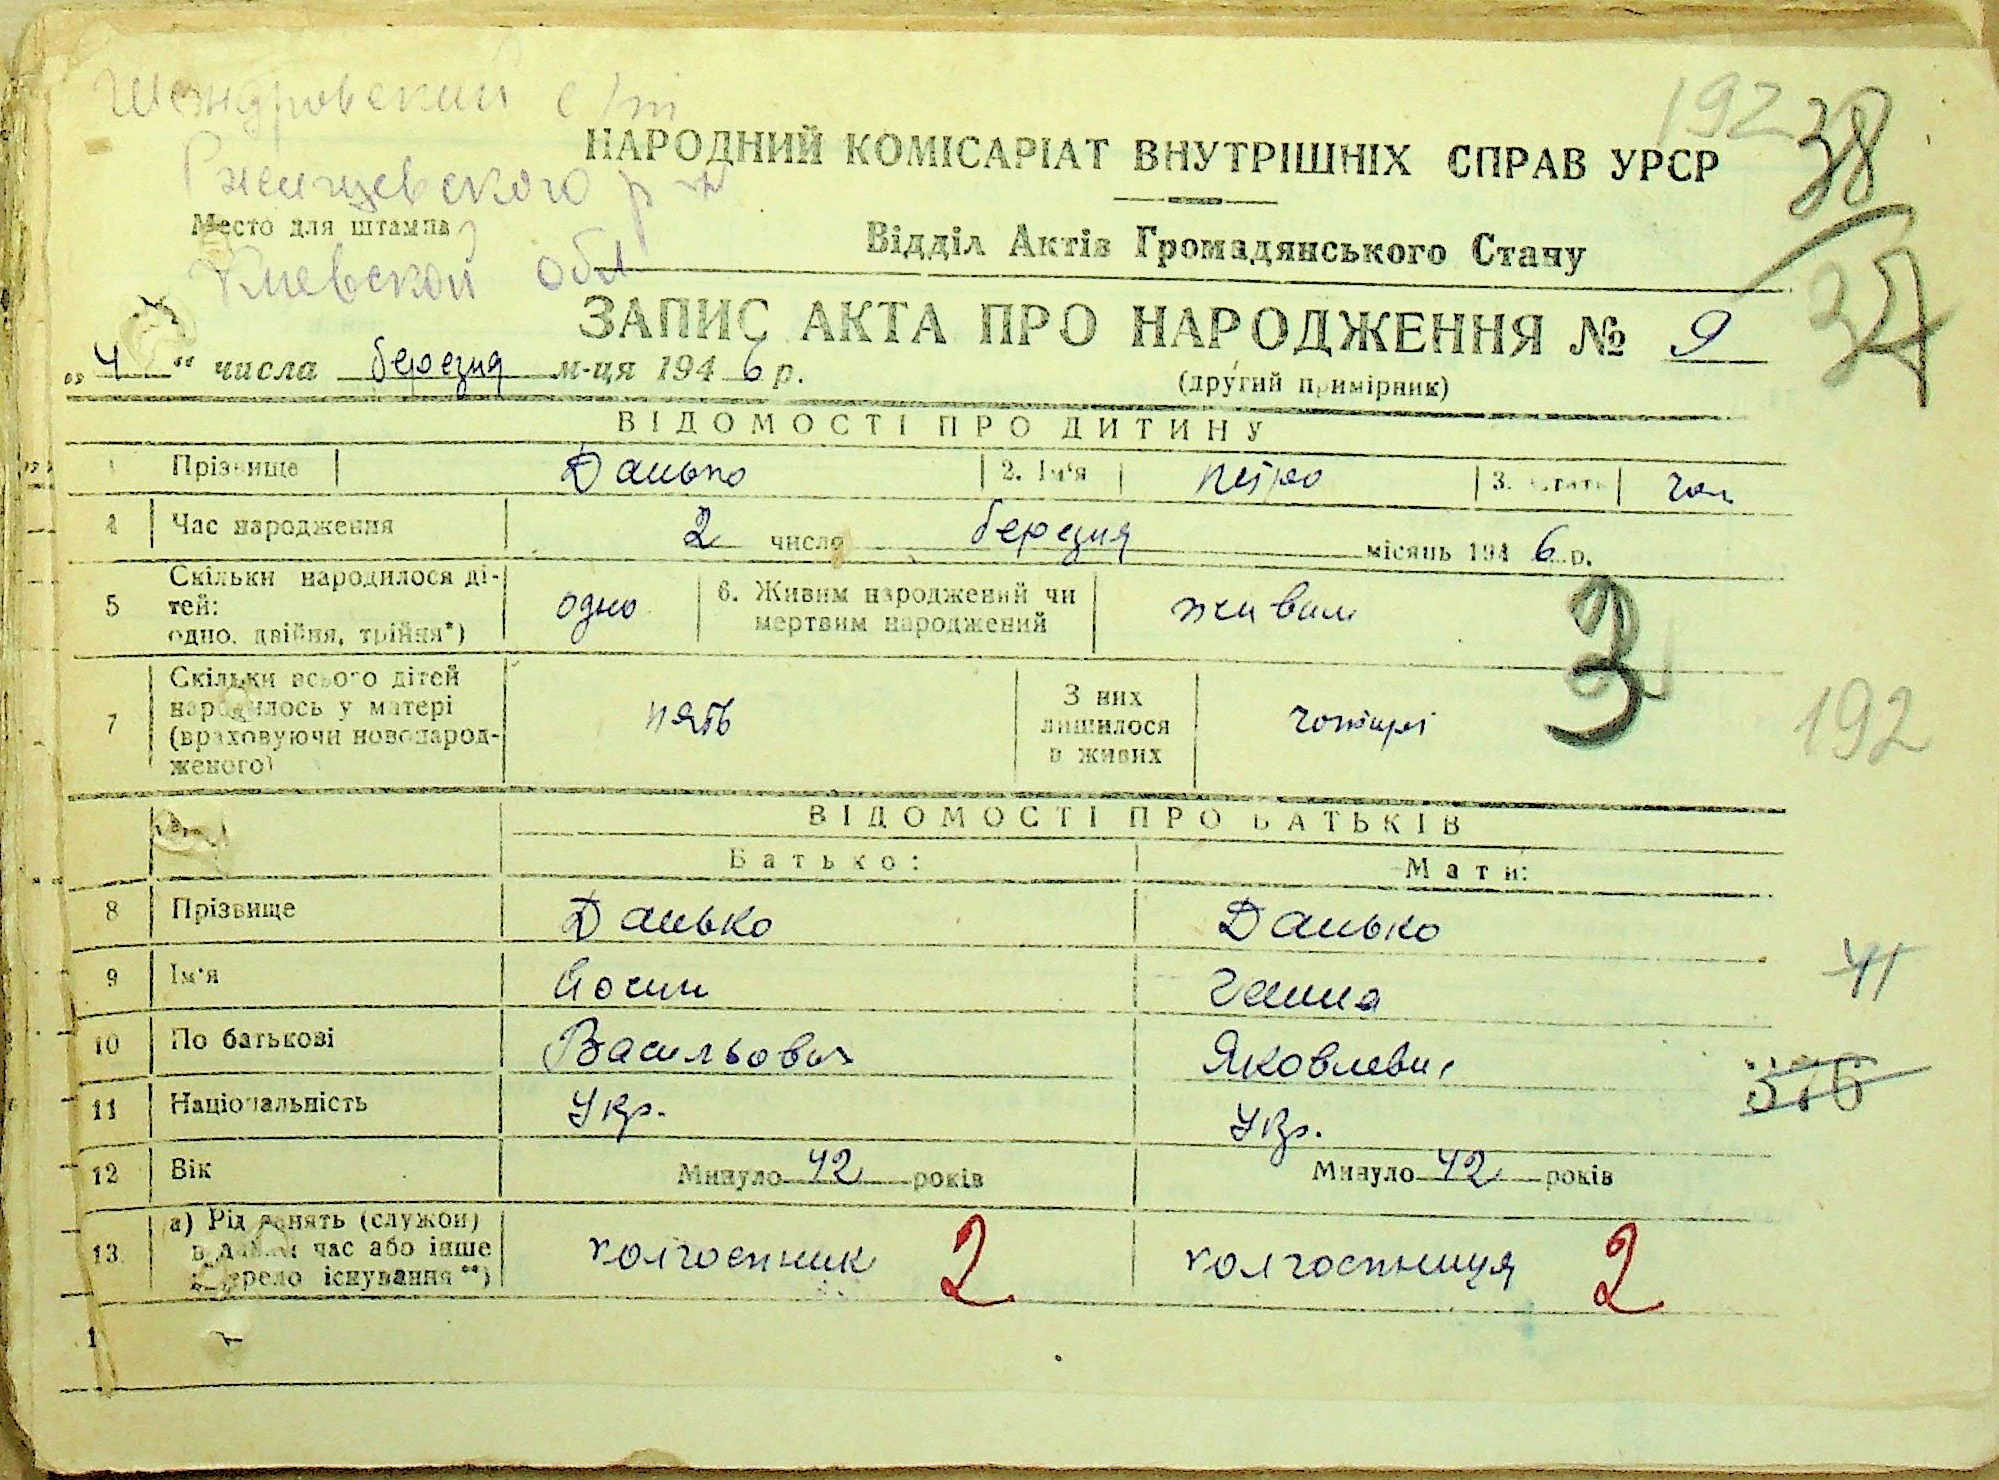 Шендровский с/т
Ржищевского р-н
Место для штампа
Киевской обл
192 38
НАРОДНИЙ КОМІСАРІАТ ВНУТРІШНІХ СПРАВ УРСР
Відділ Актів Громадянського Стану
37
ЗАПИС АКТА ПРО НАРОДЖЕННЯ № 9
„4“ числа березня м-ця 1946 р.
(другий примірник)
ВІДОМОСТІ ПРО ДИТИНУ
1 Прізвище Данько 2. Ім'я Петро 3. Стать чол
4 Час народження 2 число березня місяць 1946 р.
5 Скільки народилося ді-
тей:
одно, двійня, трійня*) одно 6. Живим народжений чи
мертвим народжений живим
3
7 Скільки всього дітей
народилось у матері
(враховуючи новонарод-
женого) пять З них
лишилося
в живих чотирі
192
ВІДОМОСТІ ПРО БАТЬКІВ
Батько: Мати:
8 Прізвище Данько Данько
9 Ім'я Йосип Ганна
41
10 По батькові Васильович Яковлевн
11 Національність Укр. Укр.
376
12 Вік Минуло 42 років Минуло 42 років
13 а) Рід занять (служби)
в даний час або інше
джерело існування**) колгоспник 2 колгоспниця 2
1